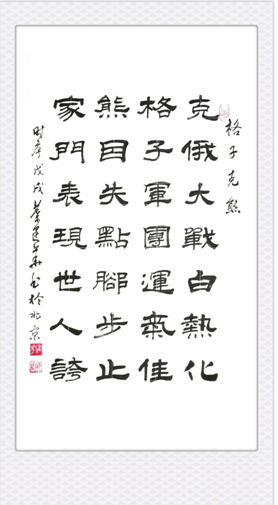 格子克熊
克俄大戰白熱化
格子軍團運氣佳
熊因失點腳步止
家門表現世人誇
时序戊戌 书於北京